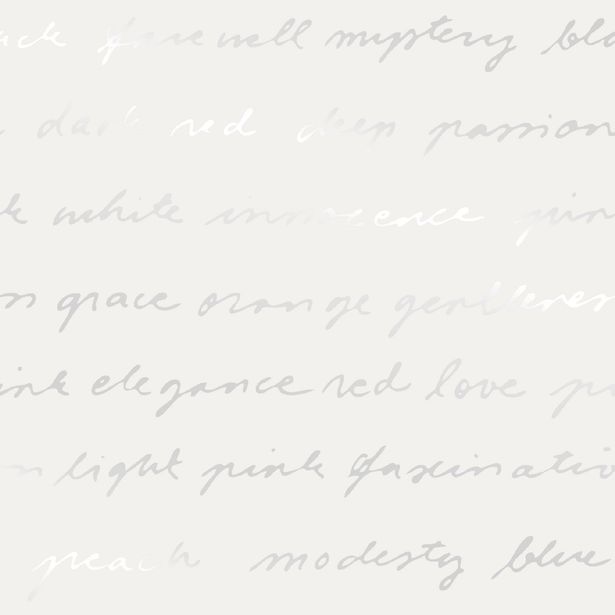 farewell mystery
dark red deep passion
white innocence
grace orange gentleness
elegance red love
light pink fascinatio
peach modesty blue